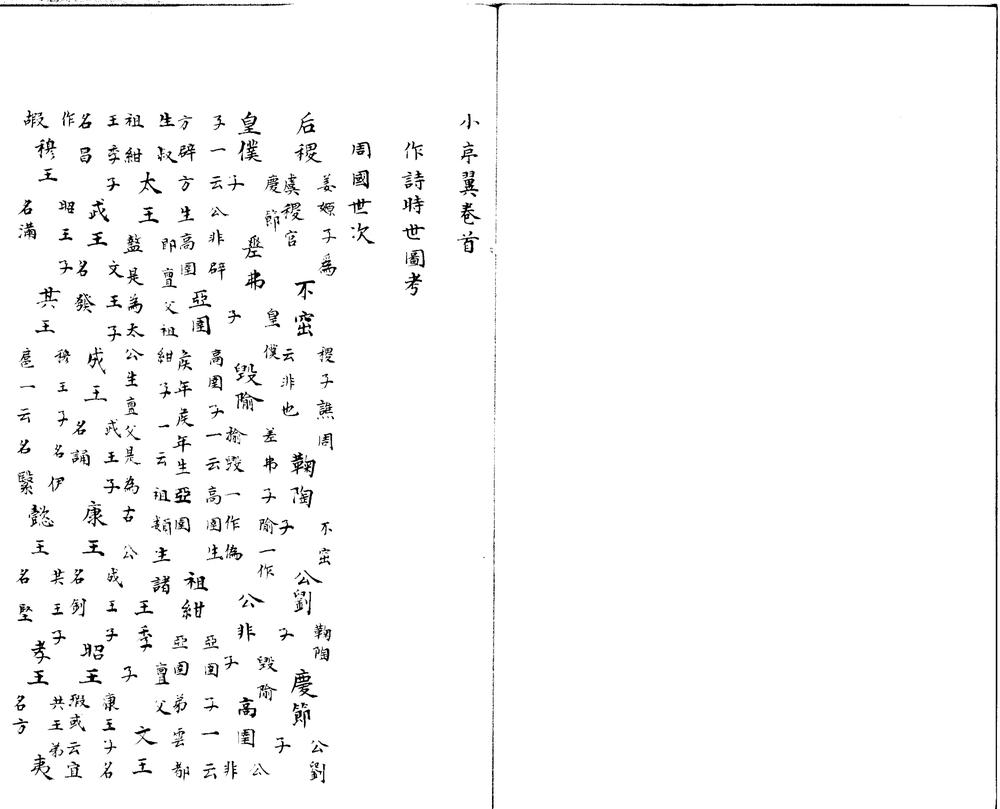 小亭翼卷首
作詩時世圖考
周國世次
后稷姜嫄子為虞稷官不窋稷子譙周云非也鞠陶不窋子公劉鞠陶子慶節公劉子
皇僕慶節子差弗皇僕子毀隃差弗子隃一作揄毀一作偽公非毀隃子高圉公非
子一云公非辟方辟方生高圉亞圉高圉子一云高圉生侯年侯年生亞圉祖紺亞圉子一云亞圉弟雲都
生叔祖紺太王即亶父祖紺子一云祖類生諸盩是為太公生亶父是為古公王季亶父子文王
王季子名昌武王文王子名發成王武王子名誦康王成王子名釗昭王康王子名瑕或云宜
作嘏穆王昭王子名滿共王穆王子名伊扈一云名繄懿王共王子名堅孝王共王弟名方夷